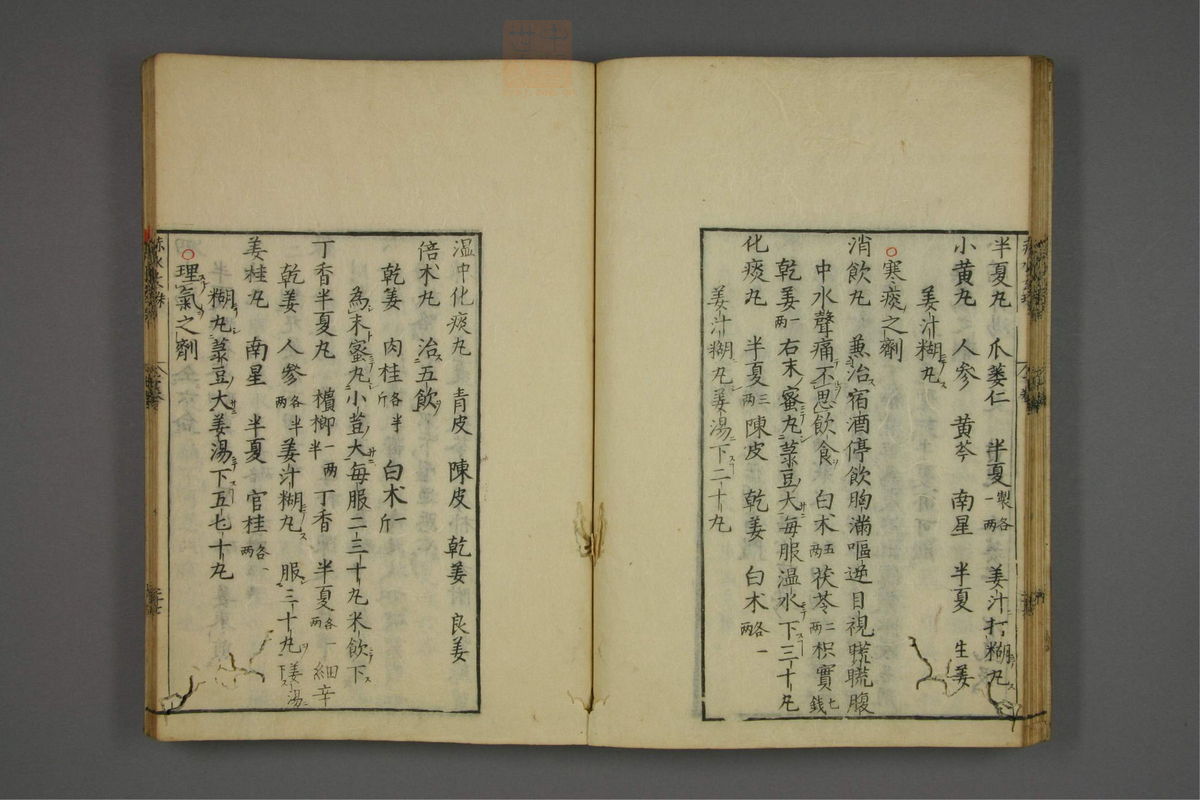 半夏丸 爪蔞仁 半夏製各一两 姜汁打糊丸
小黄丸 人参 黄芩 南星 半夏 生姜
姜汁糊丸
寒痰之劑
消飲丸 兼治宿酒停飲胸滿嘔逆目視䀮䀮腹
中水聲痛不思飲食 白术五两茯苓二两枳實七錢
乾姜一两右末蜜丸菉豆大每服温水下三十丸
化痰丸 半夏三两陳皮 乾姜 白术各一两
姜汁糊丸姜湯下二十丸
温中化痰丸 青皮 陳皮 乾姜 良姜
倍术丸 治五飲
乾姜 肉桂各半斤 白术一斤
為末蜜丸小荳大每服二三十丸米飲下
丁香半夏丸 檳榔一两半丁香 半夏各一两 細辛
乾姜 人参各半两姜汁糊丸 服三十丸姜湯下
姜桂丸 南星 半夏 官桂各一两
糊丸菉豆大姜湯下五七十丸
理氣之劑